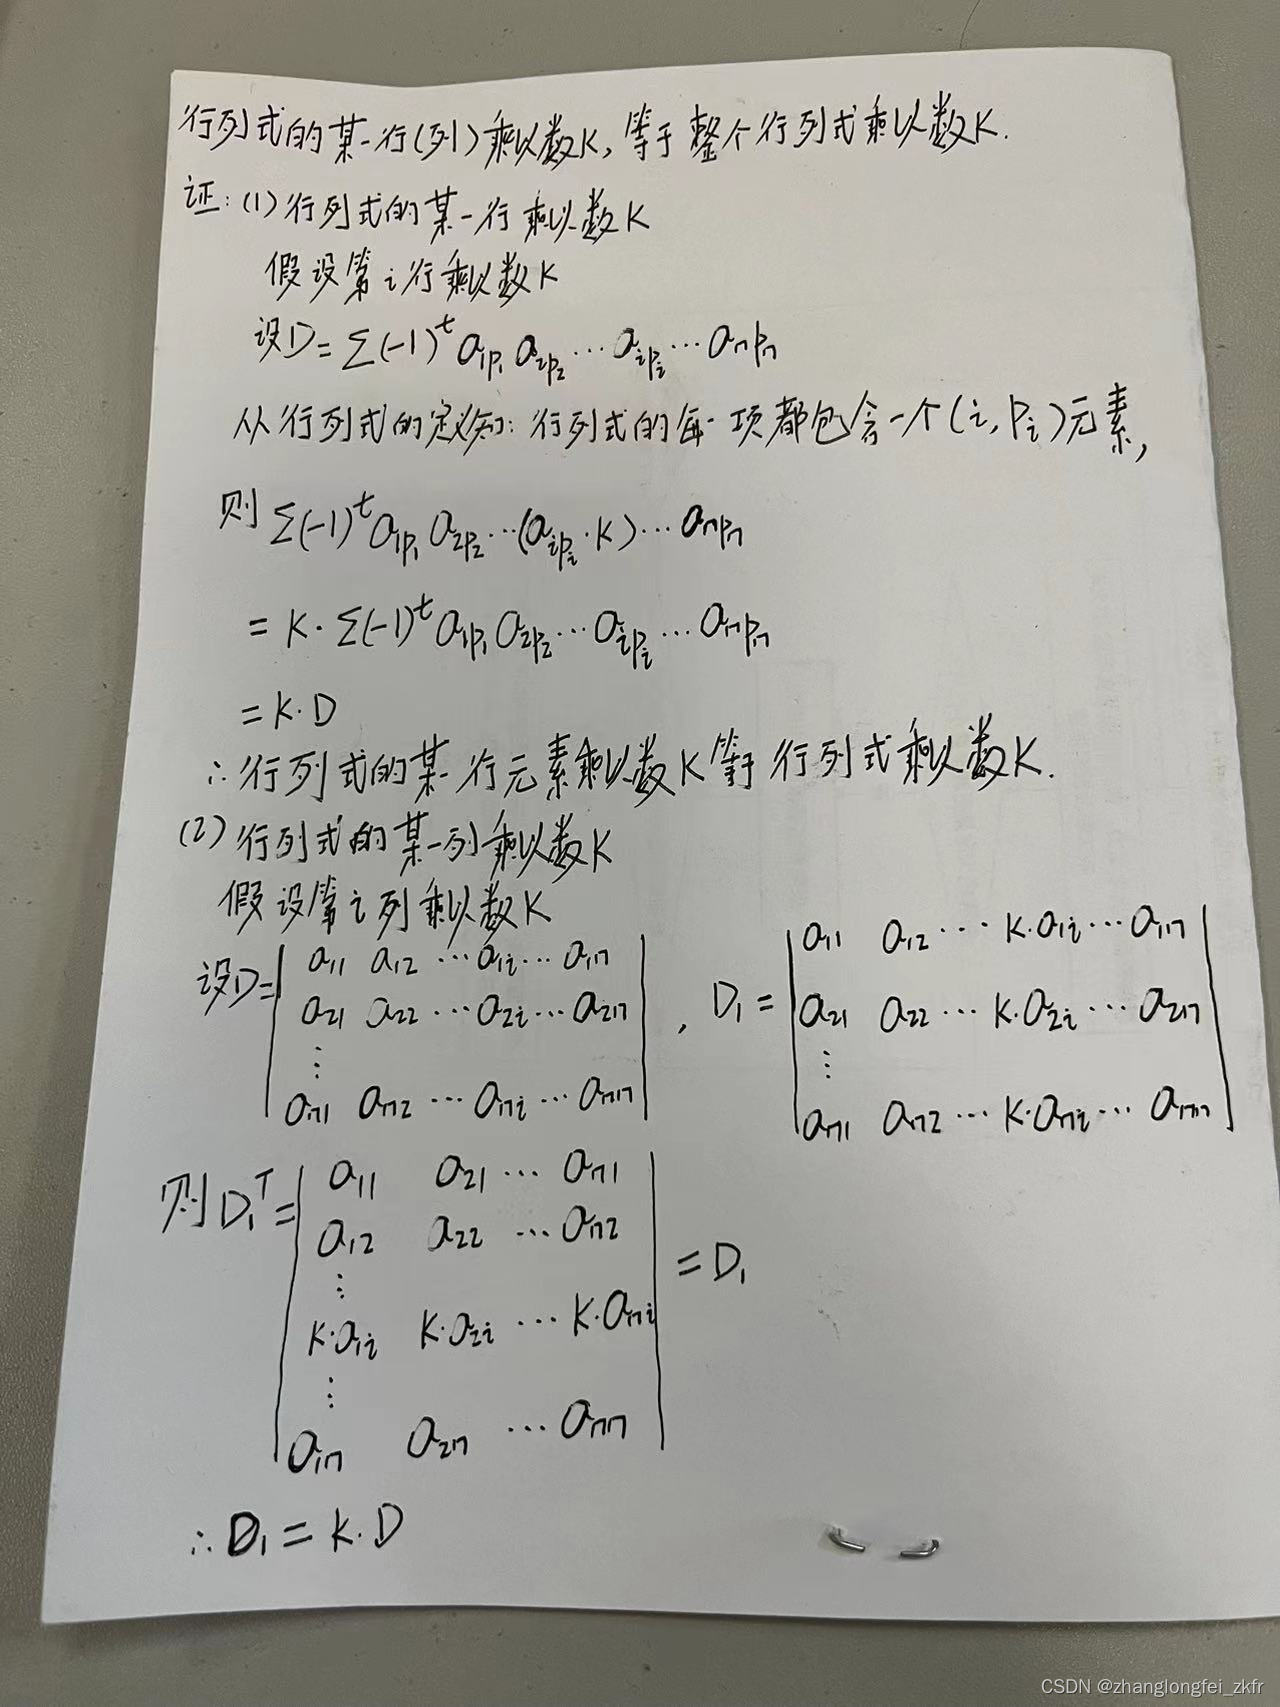 行列式的某一行(列)乘以数K,等于整个行列式乘以数K.
证:(1)行列式的某一行乘以数K
假设第i行乘以数K
设D=∑(-1)^t a_{1p_1} a_{2p_2} ⋯ a_{ip_i} ⋯ a_{np_n}
从行列式的定义知:行列式的每一项都包含一个(i, p_i)元素,
则 ∑(-1)^t a_{1p_1} a_{2p_2} ⋯ (a_{ip_i}·K) ⋯ a_{np_n}
= K·∑(-1)^t a_{1p_1} a_{2p_2} ⋯ a_{ip_i} ⋯ a_{np_n}
= K·D
∴行列式的某一行元素乘以数K等于行列式乘以数K.
(2)行列式的某一列乘以数K
假设第i列乘以数K
设D= | a_{11} a_{12} ⋯ a_{1i} ⋯ a_{1n} |
| a_{21} a_{22} ⋯ a_{2i} ⋯ a_{2n} |
⋮
| a_{n1} a_{n2} ⋯ a_{ni} ⋯ a_{nn} |
, D_1 = | a_{11} a_{12} ⋯ K·a_{1i} ⋯ a_{1n} |
| a_{21} a_{22} ⋯ K·a_{2i} ⋯ a_{2n} |
⋮
| a_{n1} a_{n2} ⋯ K·a_{ni} ⋯ a_{nn} |
则 D_1^T = | a_{11} a_{21} ⋯ a_{n1} |
| a_{12} a_{22} ⋯ a_{n2} |
⋮
| K·a_{1i} K·a_{2i} ⋯ K·a_{ni} | = D_1
⋮
| a_{1n} a_{2n} ⋯ a_{nn} |
∴ D_1 = K·D
CSDN @zhanglongfei_zkfr